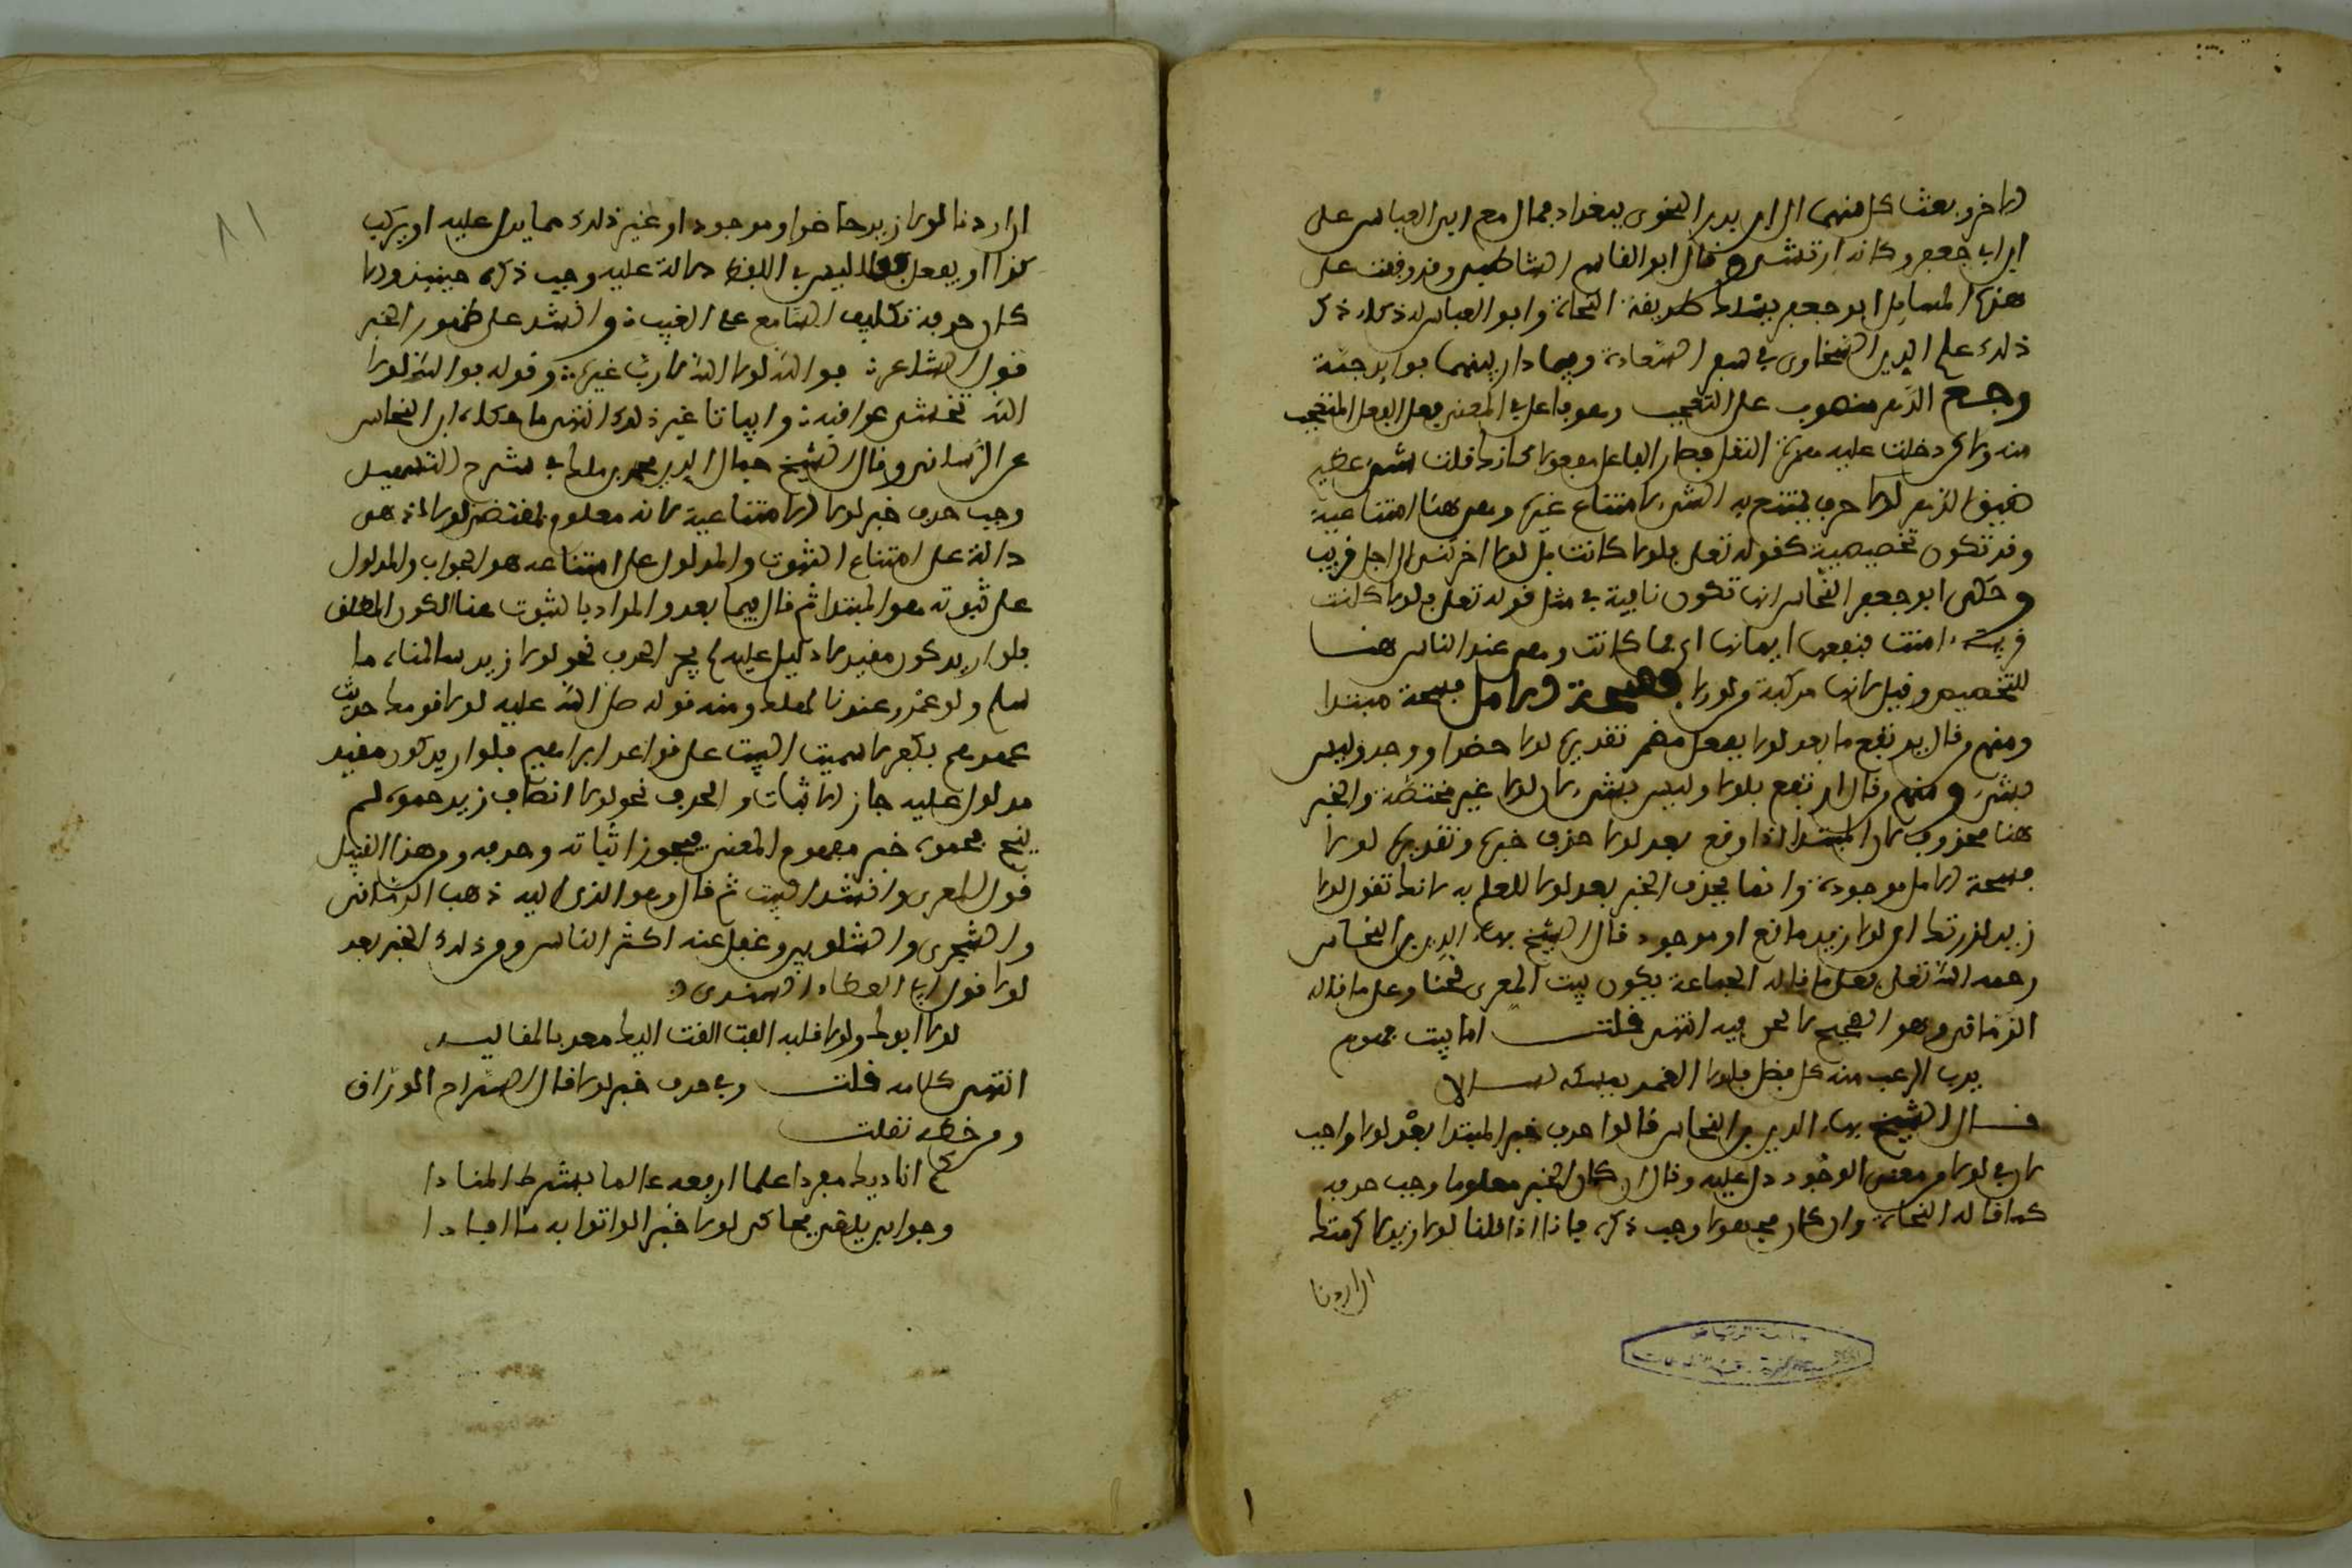 الآخر وبعثا كل منهما الى ابن بدر النحوي ببغداد فمال مع ابي العباس على
ابي جعفر وكانه ارتشى وقال ابو القاسم الشاطبي وقد وقفت على
هذه المسايل ابو جعفر يسلك طريقة النحاة وابو العباس له ذكاء ذكر
ذلك علم الدين السخاوي في سفر السعادة وفيما دار بينهما فوايد جمة
وجميع الذي منصوب على التعجب وهو فاعل في المعنى فعل الفعل المتعجب
منه ولاكن دخلت عليه همزة النقل فصار الفاعل مفعولا كانك قلت شيء عظيم
ضيق الذي لولا حرف يمتنع به الشيء لامتناع غيره وهي هنا امتناعية
وقد تكون تحضيضية كقوله تعلى فلولا كانت بل لولا اخرتنى الى اجل قريب
وحكى ابو جعفر النحاس انها تكون نافية في مثل قوله تعلى فلولا كانت
قرية ءامنت فنفعها ايمانها اي فما كانت وهي عند الناس هنا
للتخصيص وقيل لانها مركبة ولولا فسحة الامل فسحة مبتدا
ومنهم من قال يرتفع ما بعد لولا بفعل مضمر تقديره لولا حضر او وجد وليس
بشيء ومنهم من قال ارتفع بلولا وليس بشيء لان لولا غير مختصة والخبر
هنا محذوف لان المبتدا اذا وقع بعد لولا حذف خبره وتقديره لولا
فسحة الامل موجودة وانما يحذف الخبر بعد لولا للعلم به لانك تقول لولا
زيد لزرتك اي لولا زيد مانع او موجود قال الشيخ بهاء الدين بن النحاس
رحمه الله تعلى فعلى ما قاله الجماعة يكون بيت المعري لحنا وعلى ما قاله
الرماني وهو الصحيح لا لحن فيه انتهى قلت اما بيت المعري فهو
يذيب الرعب منه كل عضب فلولا الغمد يمسكه لسالا
قال الشيخ بهاء الدين بن النحاس قالوا حذف خبر المبتدا بعد لولا واجب
لان في لولا من معنى الوجود دل عليه وقال ان كان الخبر معلوما وجب حذفه
كما قاله النحاة وان كان مجهولا وجب ذكره فانا اذا قلنا لولا زيد لاكرمتك
ان اردنا
ان اردنا لولا زيد حاضر او موجود او غير ذلك مما يدل عليه او يركب
كذا او يفعل مما ليس في اللفظ دلالة عليه وجب ذكره حينئذ والا
كان حذفه تكليف السامع علم الغيب وانشد على ظهور الخبر
قول الشاعر فوالله لولا الله لا رب غيره وقوله فوالله لولا
الله تخشى عواقبه وابياتا غير ذلك انتهى ما حكاه ابن النحاس
عن الرماني وقال الشيخ جمال الدين محمد بن ملك في شرح التسهيل
وجب حذف خبر لولا الامتناعية لانه معلوم بمقتضى لولا اذ هي
دالة على امتناع الثبوت والمدلول على امتناعه هو الجواب والمدلول
على ثبوته هو المبتدا ثم قال فيما بعد والمراد بالثبوت هنا الكون المطلق
فلو اريد كون مقيد لا دليل عليه لم يجز الحذف نحو لولا زيد سالمنا ما
سلم ولو عمرو عندنا لهلك ومنه قوله صلى الله عليه لولا قومك حديث
عهدهم بكفر لاسست البيت على قواعد ابراهيم فلو اريد كون مقيد
مدلول عليه جاز الاثبات والحذف نحو لولا انصار زيد حموه لم
ينج فحموه خبر مفهوم المعنى فيجوز اثباته وحذفه ومن هذا القبيل
قول المعري وانشد البيت ثم قال وهو الذي اليه ذهب الرماني
والشجري والشلوبين وغفل عنه اكثر الناس ومن ذكر الخبر بعد
لولا قول ابي العطاء السندي
لولا ابوك ولولا قبله عمر القت اليك معد بالمقاليد
انتهى كلامه قلت وفي حذف خبر لولا قال السراج الوراق
ومن خطه نقلت
انا ديك مفردا علما ارفعه عالما بشرط المنادا
وجوابي يلقى محاكي لولا خبر الواتوا به ما افادا